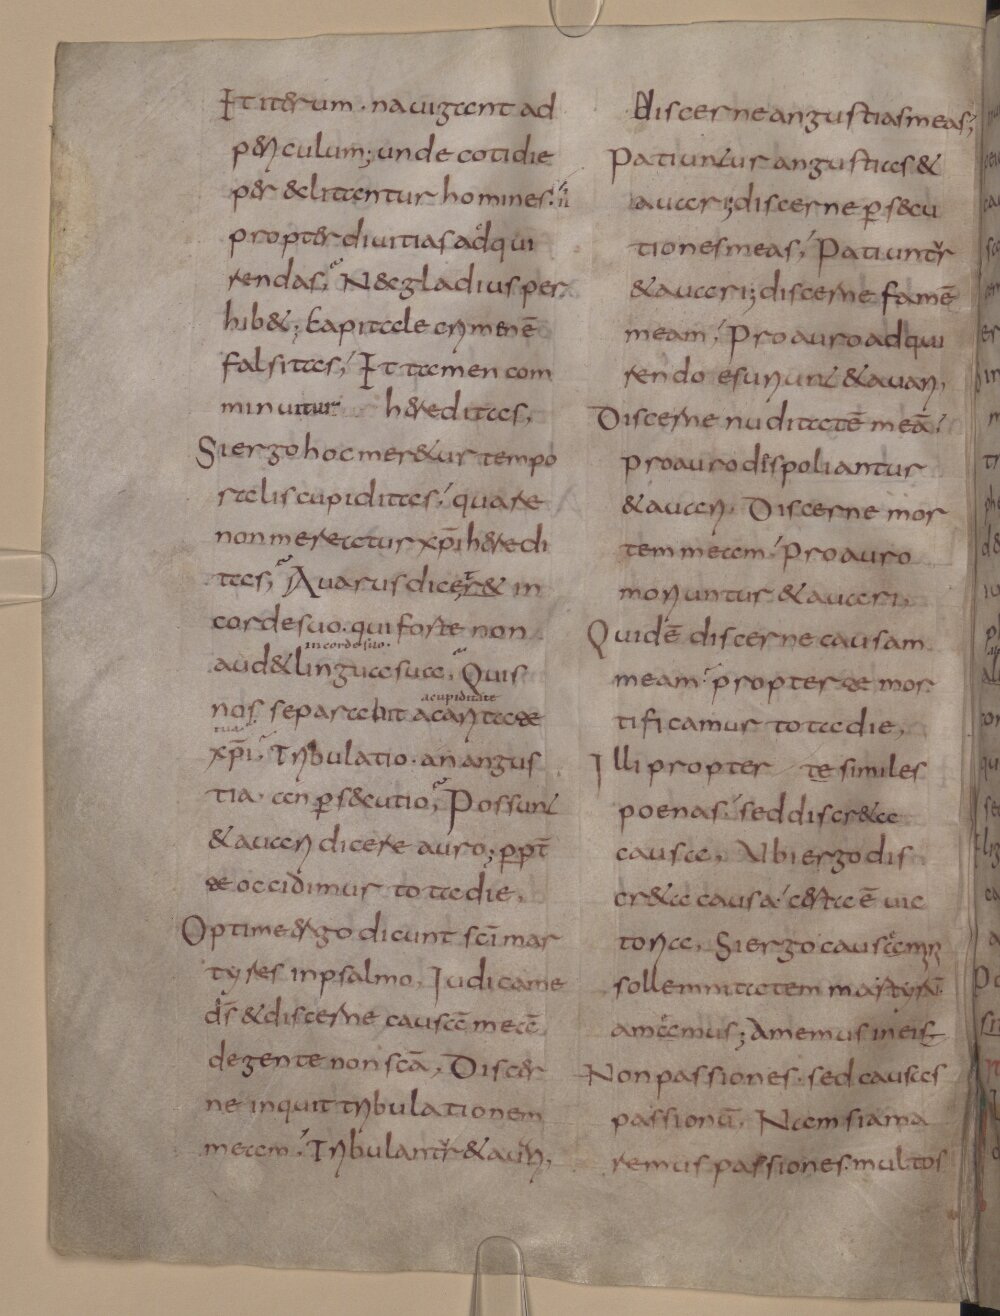 It iterum · nauigent ad
periculum; unde cotidie
per & clittentur homines.
propter diuitias adqui
rendas, N&egladius per
hib&; Capitale crimen ē
falsitas, Et tamen com
minuitur hereditas,
Si ergo hoc mer&ur tempo
ralis cupiditas, quare
non mereatur xp̄i heredi
tas, Auarus dicer& in
corde suo. qui forte non
in corde suo.
aud& lingua sua, Quis
a cupiditate
nos separabit a caritate
tua
xp̄i, Tribulatio · an angus
tia · an ꝑsecutio, Possunt
& auari dicere auro; ꝓpt̄
te occidimur tota die,
Optime ergo dicunt sc̄i mar
tyres in psalmo, Iudica me
d̄s & discerne causā meā
de gente non scā, Discer
ne inquit tribulationem
meam, Tribulantur & auari,
discerne angustias meas;
Patiuntur angustias &
auari; discerne ꝑsecu
tiones meas, Patiuntr
& auari; discerne famē
meam, Pro auro adqui
rendo esuriunt & auari,
Discerne nuditatē meā,
pro auro dispoliantur
& auari, Discerne mor
tem meam, Pro auro
moriuntur & auari,
Quid ē discerne causam
meam, propter te mor
tificamur tota die,
Illi propter te similes
poenas, sed discr&a
causa, Ubi ergo dis
cr&a causa, certa ē uic
toria, Si ergo causā mr̄m
sollemnitatem martyrū
amamus; Amemus in eis
Non passiones, sed causas
passionū, Nam si ama
remus passiones. multos